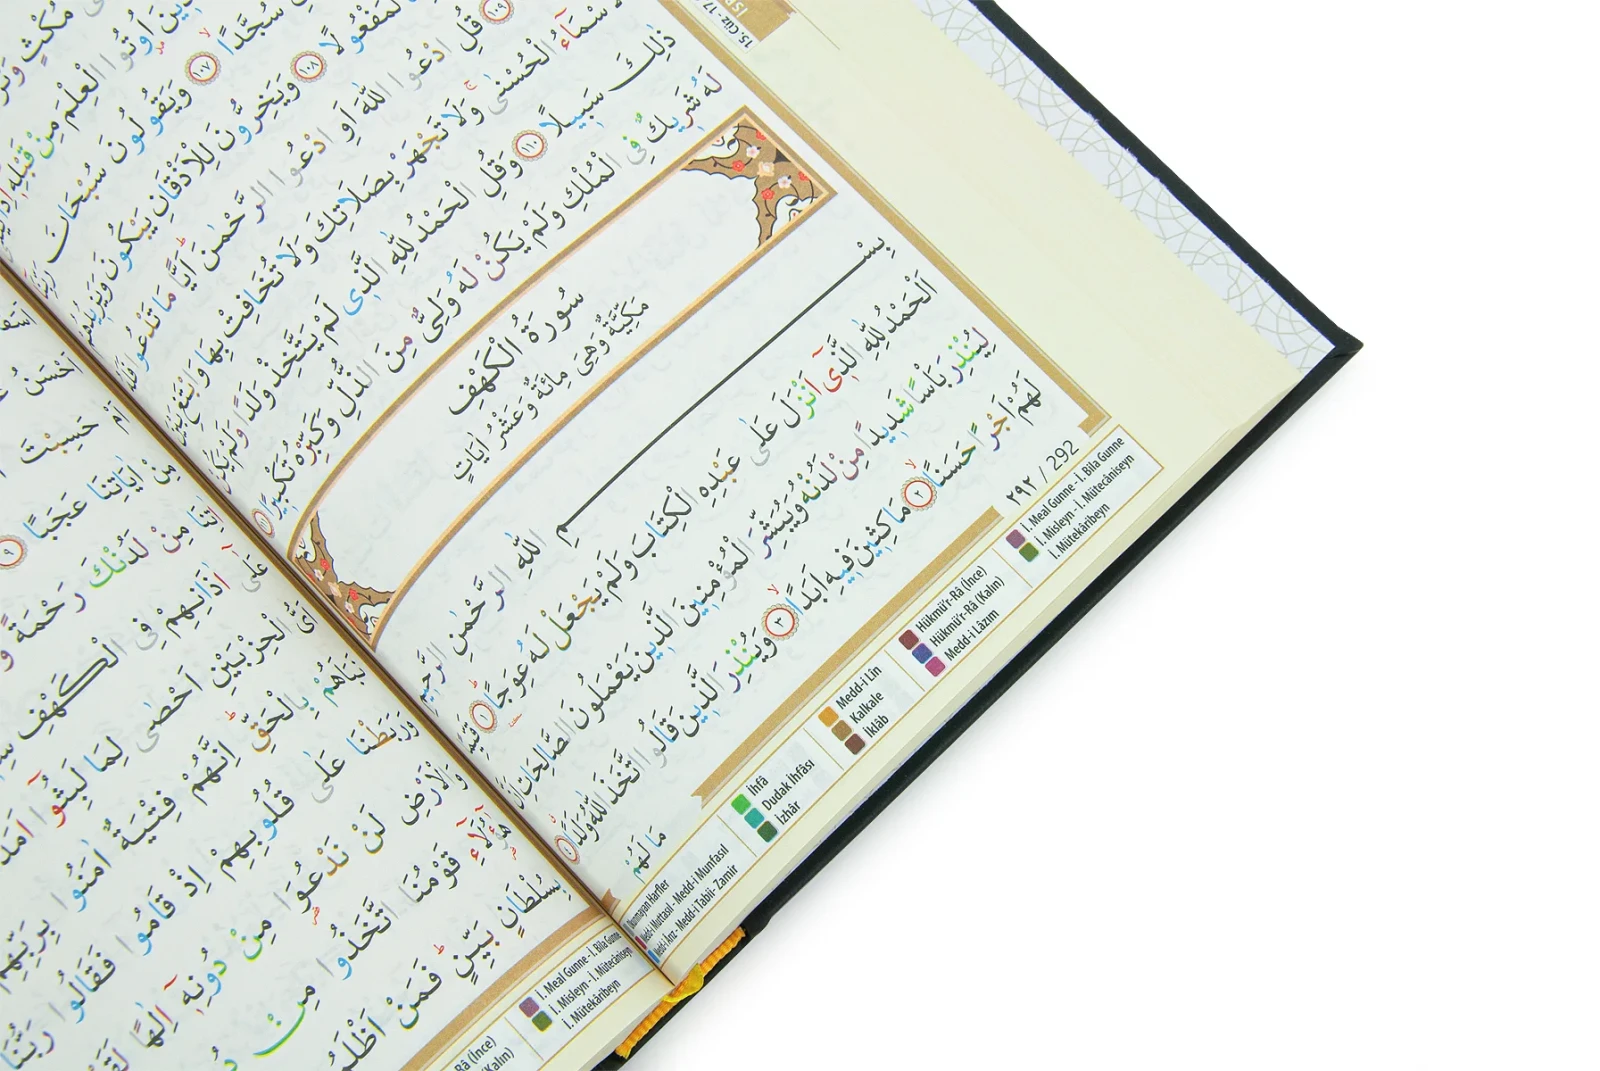 مُكْثٍ
اُو۫تُوا الْعِلْمَ مِنْ قَبْلِهٖٓ
سُجَّدًا ١٠٧ وَيَقُولُونَ سُبْحَانَ رَبِّنَا
لَمَفْعُولًا ١٠٨ وَيَخِرُّونَ لِلْاَذْقَانِ يَبْكُونَ وَيَزِيدُهُمْ
١٠٩ قُلِ ادْعُوا اللّٰهَ اَوِ ادْعُوا الرَّحْمٰنَ اَيًّا مَا تَدْعُوا فَلَهُ
الْاَسْمَٓاءُ الْحُسْنٰى وَلَا تَجْهَرْ بِصَلَاتِكَ وَلَا تُخَافِتْ بِهَا وَابْتَغِ بَيْنَ
ذٰلِكَ سَبِيلًا ١١٠ وَقُلِ الْحَمْدُ لِلّٰهِ الَّذِى لَمْ يَتَّخِذْ وَلَدًا وَلَمْ يَكُنْ
لَهُ شَرِيكٌ فِى الْمُلْكِ وَلَمْ يَكُنْ لَهُ وَلِىٌّ مِنَ الذُّلِّ وَكَبِّرْهُ تَكْبِيرًا ١١١
سُورَةُ الْكَهْفِ
مَكِّيَّةٌ وَهِىَ مِائَةٌ وَعَشْرُ اٰيَاتٍ
بِسْمِ اللّٰهِ الرَّحْمٰنِ الرَّحِيمِ
اَلْحَمْدُ لِلّٰهِ الَّذِٓى اَنْزَلَ عَلٰى عَبْدِهِ الْكِتَابَ وَلَمْ يَجْعَلْ لَهُ عِوَجًا ١ قَيِّمًا
لِيُنْذِرَ بَأْسًا شَدِيدًا مِنْ لَدُنْهُ وَيُبَشِّرَ الْمُؤْمِنِينَ الَّذِينَ يَعْمَلُونَ الصَّالِحَاتِ اَنَّ
لَهُمْ اَجْرًا حَسَنًا ٢ مَاكِثِينَ فِيهِ اَبَدًا ٣ وَيُنْذِرَ الَّذِينَ قَالُوا اتَّخَذَ اللّٰهُ وَلَدًا ٤
مَا لَهُمْ
٢٩٢ / 292
15.Cüz - 17
İ. Meal Gunne - İ. Bila Gunne
İ. Misleyn - İ. Mütecâniseyn
İ. Mütekâribeyn
Hükmü'r-Râ (İnce)
Hükmü'r-Râ (Kalın)
Medd-i Lâzım
Medd-i Lîn
Kalkale
İklâb
İhfâ
Dudak İhfâsı
İzhâr
Okunmayan Harfler
Medd-i Muttasıl - Medd-i Munfasıl
Medd-i Ârız - Medd-i Tabii- Zamir
اَحْسَنُ
اَمْ حَسِبْتَ
مِنْ اٰيَاتِنَا عَجَبًا ٩
اٰتِنَا مِنْ لَدُنْكَ رَحْمَةً
عَلٰٓى اٰذَانِهِمْ فِى الْكَهْفِ
اَىُّ الْحِزْبَيْنِ اَحْصٰى لِمَا لَبِثُٓوا اَمَدًا
نَبَاَهُمْ بِالْحَقِّ اِنَّهُمْ فِتْيَةٌ اٰمَنُوا بِرَبِّهِمْ
وَرَبَطْنَا عَلٰى قُلُوبِهِمْ اِذْ قَامُوا فَقَالُوا رَبُّنَا
وَالْاَرْضِ لَنْ نَدْعُوَا مِنْ دُونِهٖٓ اِلٰهًا لَقَدْ
هٰٓؤُلَٓاءِ قَوْمُنَا اتَّخَذُوا مِنْ
بِسُلْطَانٍ بَيِّنٍ فَمَنْ اَظْلَمُ
İ. Meal Gunne - İ. Bila Gunne
İ. Misleyn - İ. Mütecâniseyn
İ. Mütekâribeyn
Râ (İnce)
(Kalın)